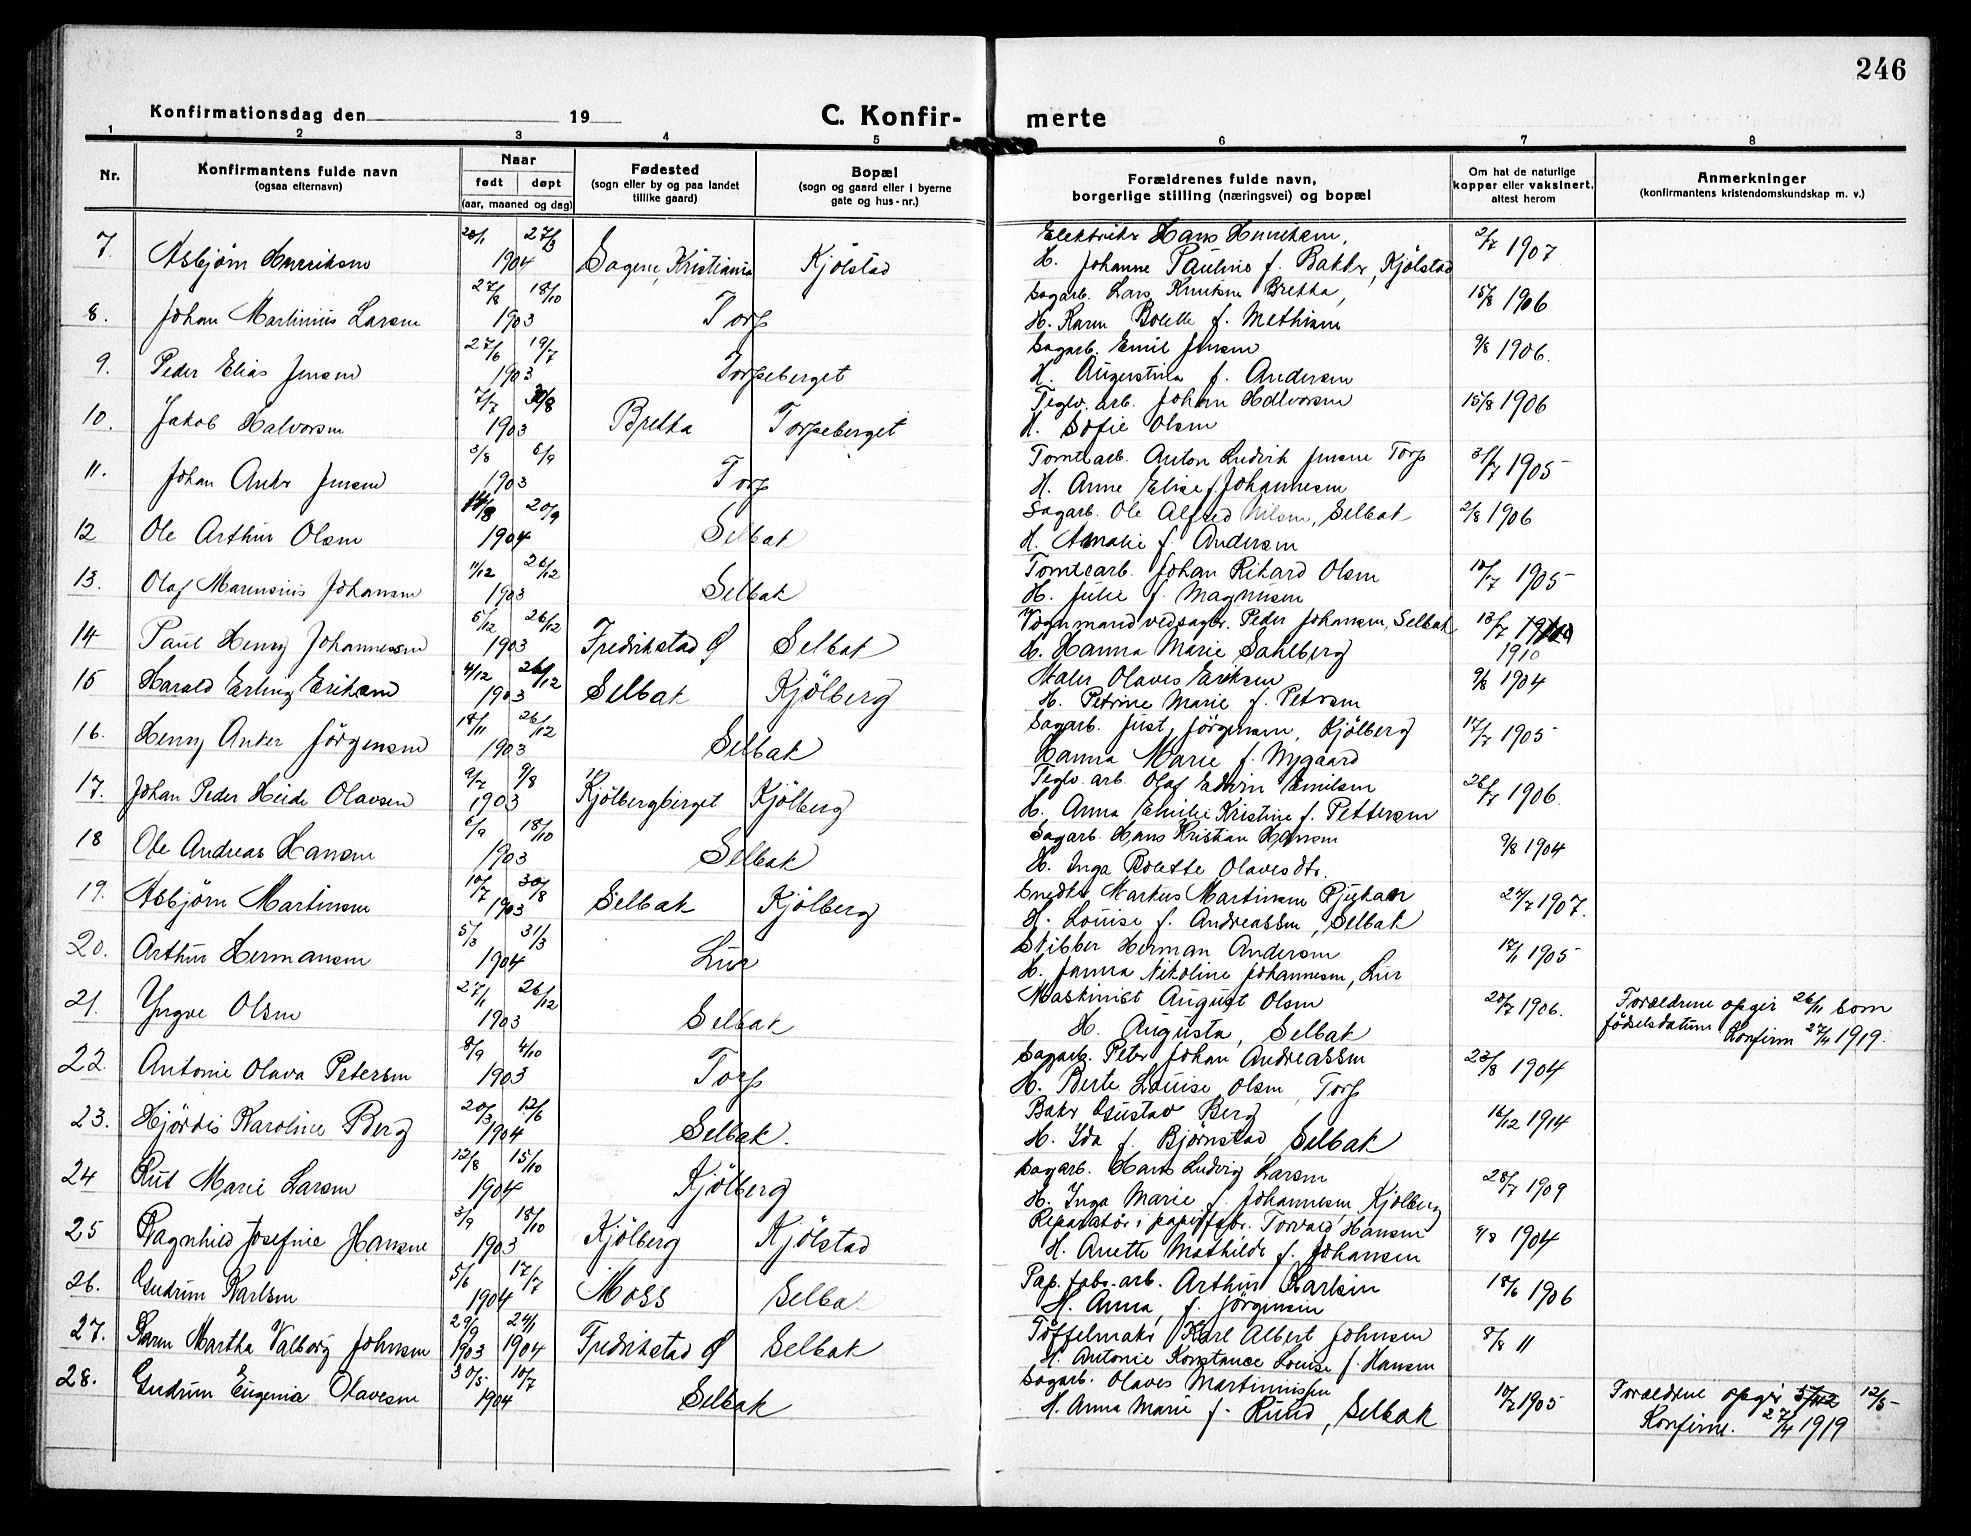 246
Konfirmationsdag den 19
C. Konfir- merte
1 2 3 4 5 6 7 8
Nr. Konfirmantens fulde navn (ogsaa efternavn) Naar født døpt (aar, maaned og dag) Fødested (sogn eller by og paa landet tillike gaard) Bopæl (sogn og gaard eller i byerne gate og hus-nr.) Forældrenes fulde navn, borgerlige stilling (næringsvei) og bopæl Om hat de naturlige kopper eller vaksinert, altest herom Anmerkninger (konfirmantens kristendomskundskap m. v.)
7. Asbjörn Henriksen 20/1 27/3 1904 Sagene, Kristiania Kjölstad Elektriker Hans Henriksen, 2/7 1907
H. Johanne Pauline f. Bakke, Kjölstad
8. Johan Martinius Larsen 27/8 18/10 1903 Torp Sagarb. Lars Knutsen Bretka, 15/8 1906
H. Karen Bolette f. Methisen
9. Peder Elias Jensen 27/6 19/7 1903 Torpeberget Sagarb. Emil Jensen 9/8 1906.
H. Augustina f. Andersen
10. Jakob Halvorsen 7/7 30/8 1903 Bretka Torpeberget Teglv. arb. Johan Halvorsen 15/8 1906
H. Sofie Olsen
11. Johan Anker Jensen 3/8 6/9 1903 Torp Tomtearb. Anton Ludvik Jensen Torp 31/7 1905
H. Anne Elise f. Johannesen
12 Ole Arthur Olsen 14/8 20/9 1904 Selbak Sagarb. Ole Alfred Nilsen, Selbak 2/8 1906
H. Amalie f. Andersen
13. Olaf Marensius Johansen 11/12 26/12 1903 Selbak Tomtearb. Johan Rikard Olsen 10/7 1905
H. Julie f. Magnusen
14 Paul Henry Johannessen 5/12 26/12 1903 Fredrikstad Ø Selbak Vognmand ved sagbr. Peder Johansen, Selbak 13/7 1910
H. Hanna Marie Sahlberg
15 Harald Erling Eriksen 4/12 26/12 1903 Selbak Kjölberg Maler Olaves Eriksen 9/8 1904
H. Petrine Marie f. Petersen
16. Henry Anker Jörgensen 18/11 26/12 1903 Selbak Sagarb. Just Jörgensen, Kjölberg 17/7 1905
Hanna Marie f. Nygaard
17. Johan Peder Heide Olavsen 9/7 9/8 1903 Kjölbergberget Kjölberg Teglv. arb. Olaf Edvin Emilsen 26/7 1906.
H. Anna Emilie Kristine f. Pettersen
18 Ole Andreas Hansen 6/9 18/10 1903 Selbak Sagarb. Hans Kristian Hansen 9/8 1904
H. Inga Bolette Olavesdtr.
19. Asbjörn Martinsen 10/7 30/8 1903 Selbak Kjölberg Snedker Markus Martinsen Rjukan 27/7 1907.
H. Louise f. Andreassen, Selbak
20. Arthur Hermansen 5/3 31/3 1904 Lur Skibber Herman Andersen 17/1 1905
H. Janna Nikoline Johannesen, Lur
21. Yngve Olsen 27/11 26/12 1903 Selbak Maskinist August Olsen 20/7 1906. Forældrene opgir 26/11 som
H. Augusta, Selbak fødselsdatum Konfirm 27/4 1919.
22. Antonie Olava Petersen 8/9 4/10 1903 Torp Sagarb. Peter Johan Andreassen 23/8 1904
H. Berte Louise Olsen, Torp
23. Hjördis Karoline Berg 20/3 12/6 1904 Selbak. Baker Gustav Berg 16/12 1914
H. Ida f. Björnstad, Selbak
24 Rut Marie Larsen 12/8 15/10 1904 Kjölberg Sagarb. Hans Ludvig Larsen 28/7 1909
H. Inga Marie f. Johannesen Kjölberg
25 Ragnhild Josefine Hansen 3/9 18/10 1903 Kjölberg Kjölstad Reparatör i papirfabr. Torvald Hansen 9/8 1904
H. Anette Mathilde f. Johansen
26. Gudrun Karlsen 5/6 17/7 1904 Moss Selba Pap. fabr. arb. Arthur Karlsen 18/6 1906
H. Anna, f. Jörgensen
27. Karen Martha Valborg Johnsen 29/9 1903 24/1 1904 Fredrikstad Ø Selbak Töffelmaker Karl Albert Johnsen 8/8 11
H. Antonie Konstance Louise f. Hansen
28. Gudrun Eugenia Olavesen 30/5 10/7 1904 Selbak Sagarb. Olaves Martiniussen 10/7 1905 Forældrene opgir 12/5
H. Anna Marie f. Rund, Selbak Konfirm. 27/4 1919